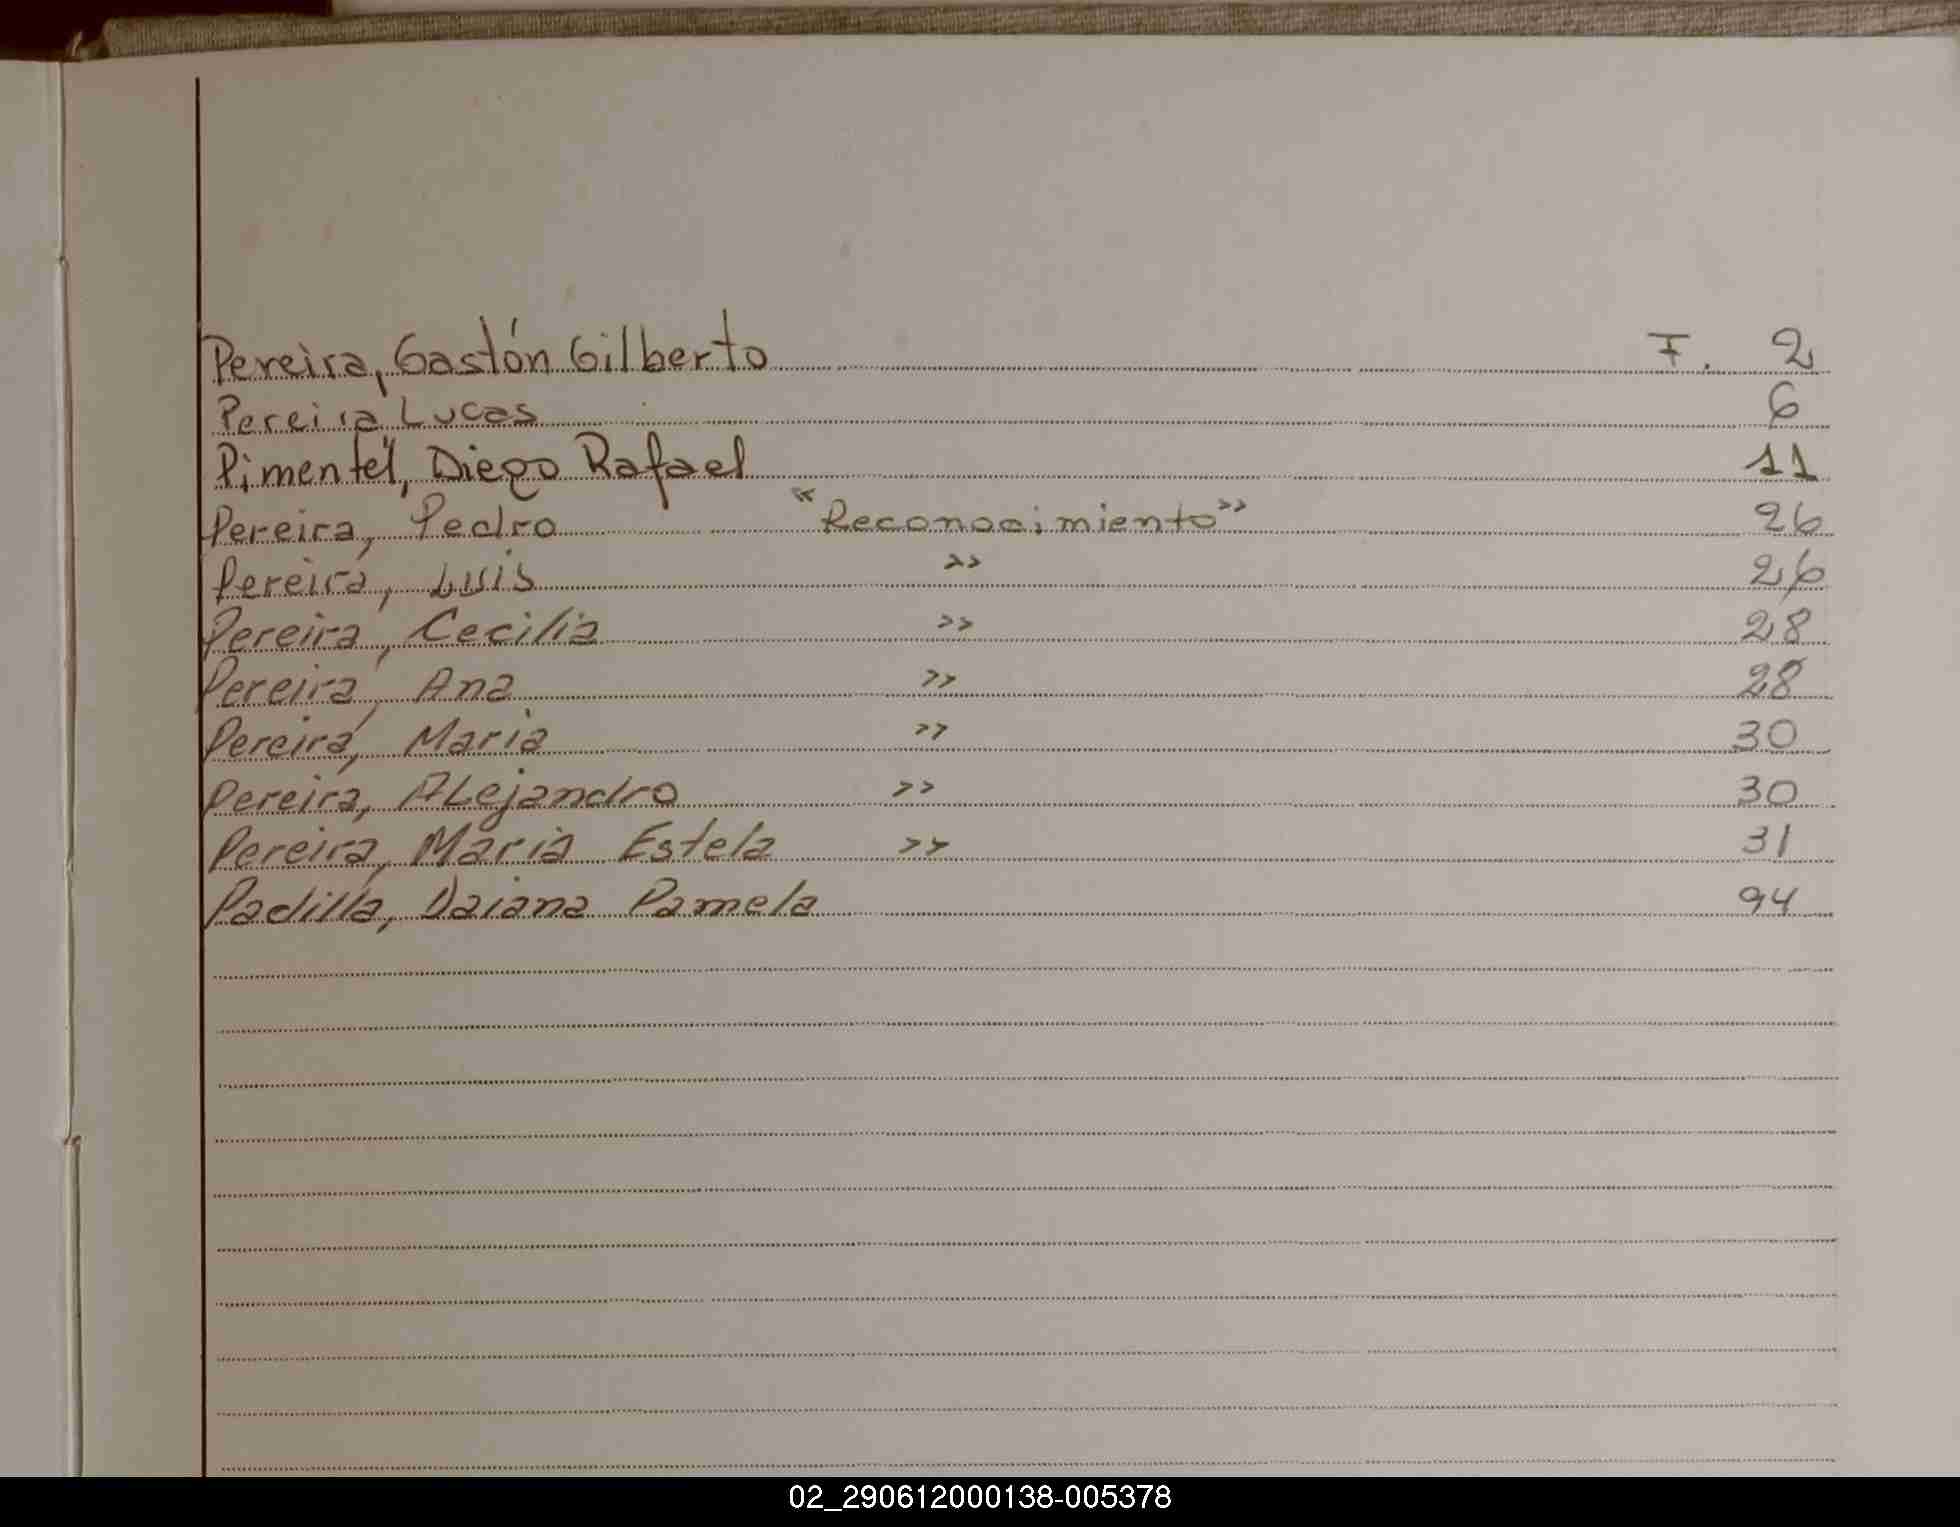 Pereira, Gastón Gilberto F. 2
Pereira Lucas 6
Pimentel, Diego Rafael 11
Pereira, Pedro "Reconocimiento" 26
Pereira, Luis >> 26
Pereira, Cecilia >> 28
Pereira, Ana >> 28
Pereira, Maria >> 30
Pereira, Alejandro >> 30
Pereira, Maria Estela >> 31
Padilla, Daiana Pamela 94
02_290612000138-005378